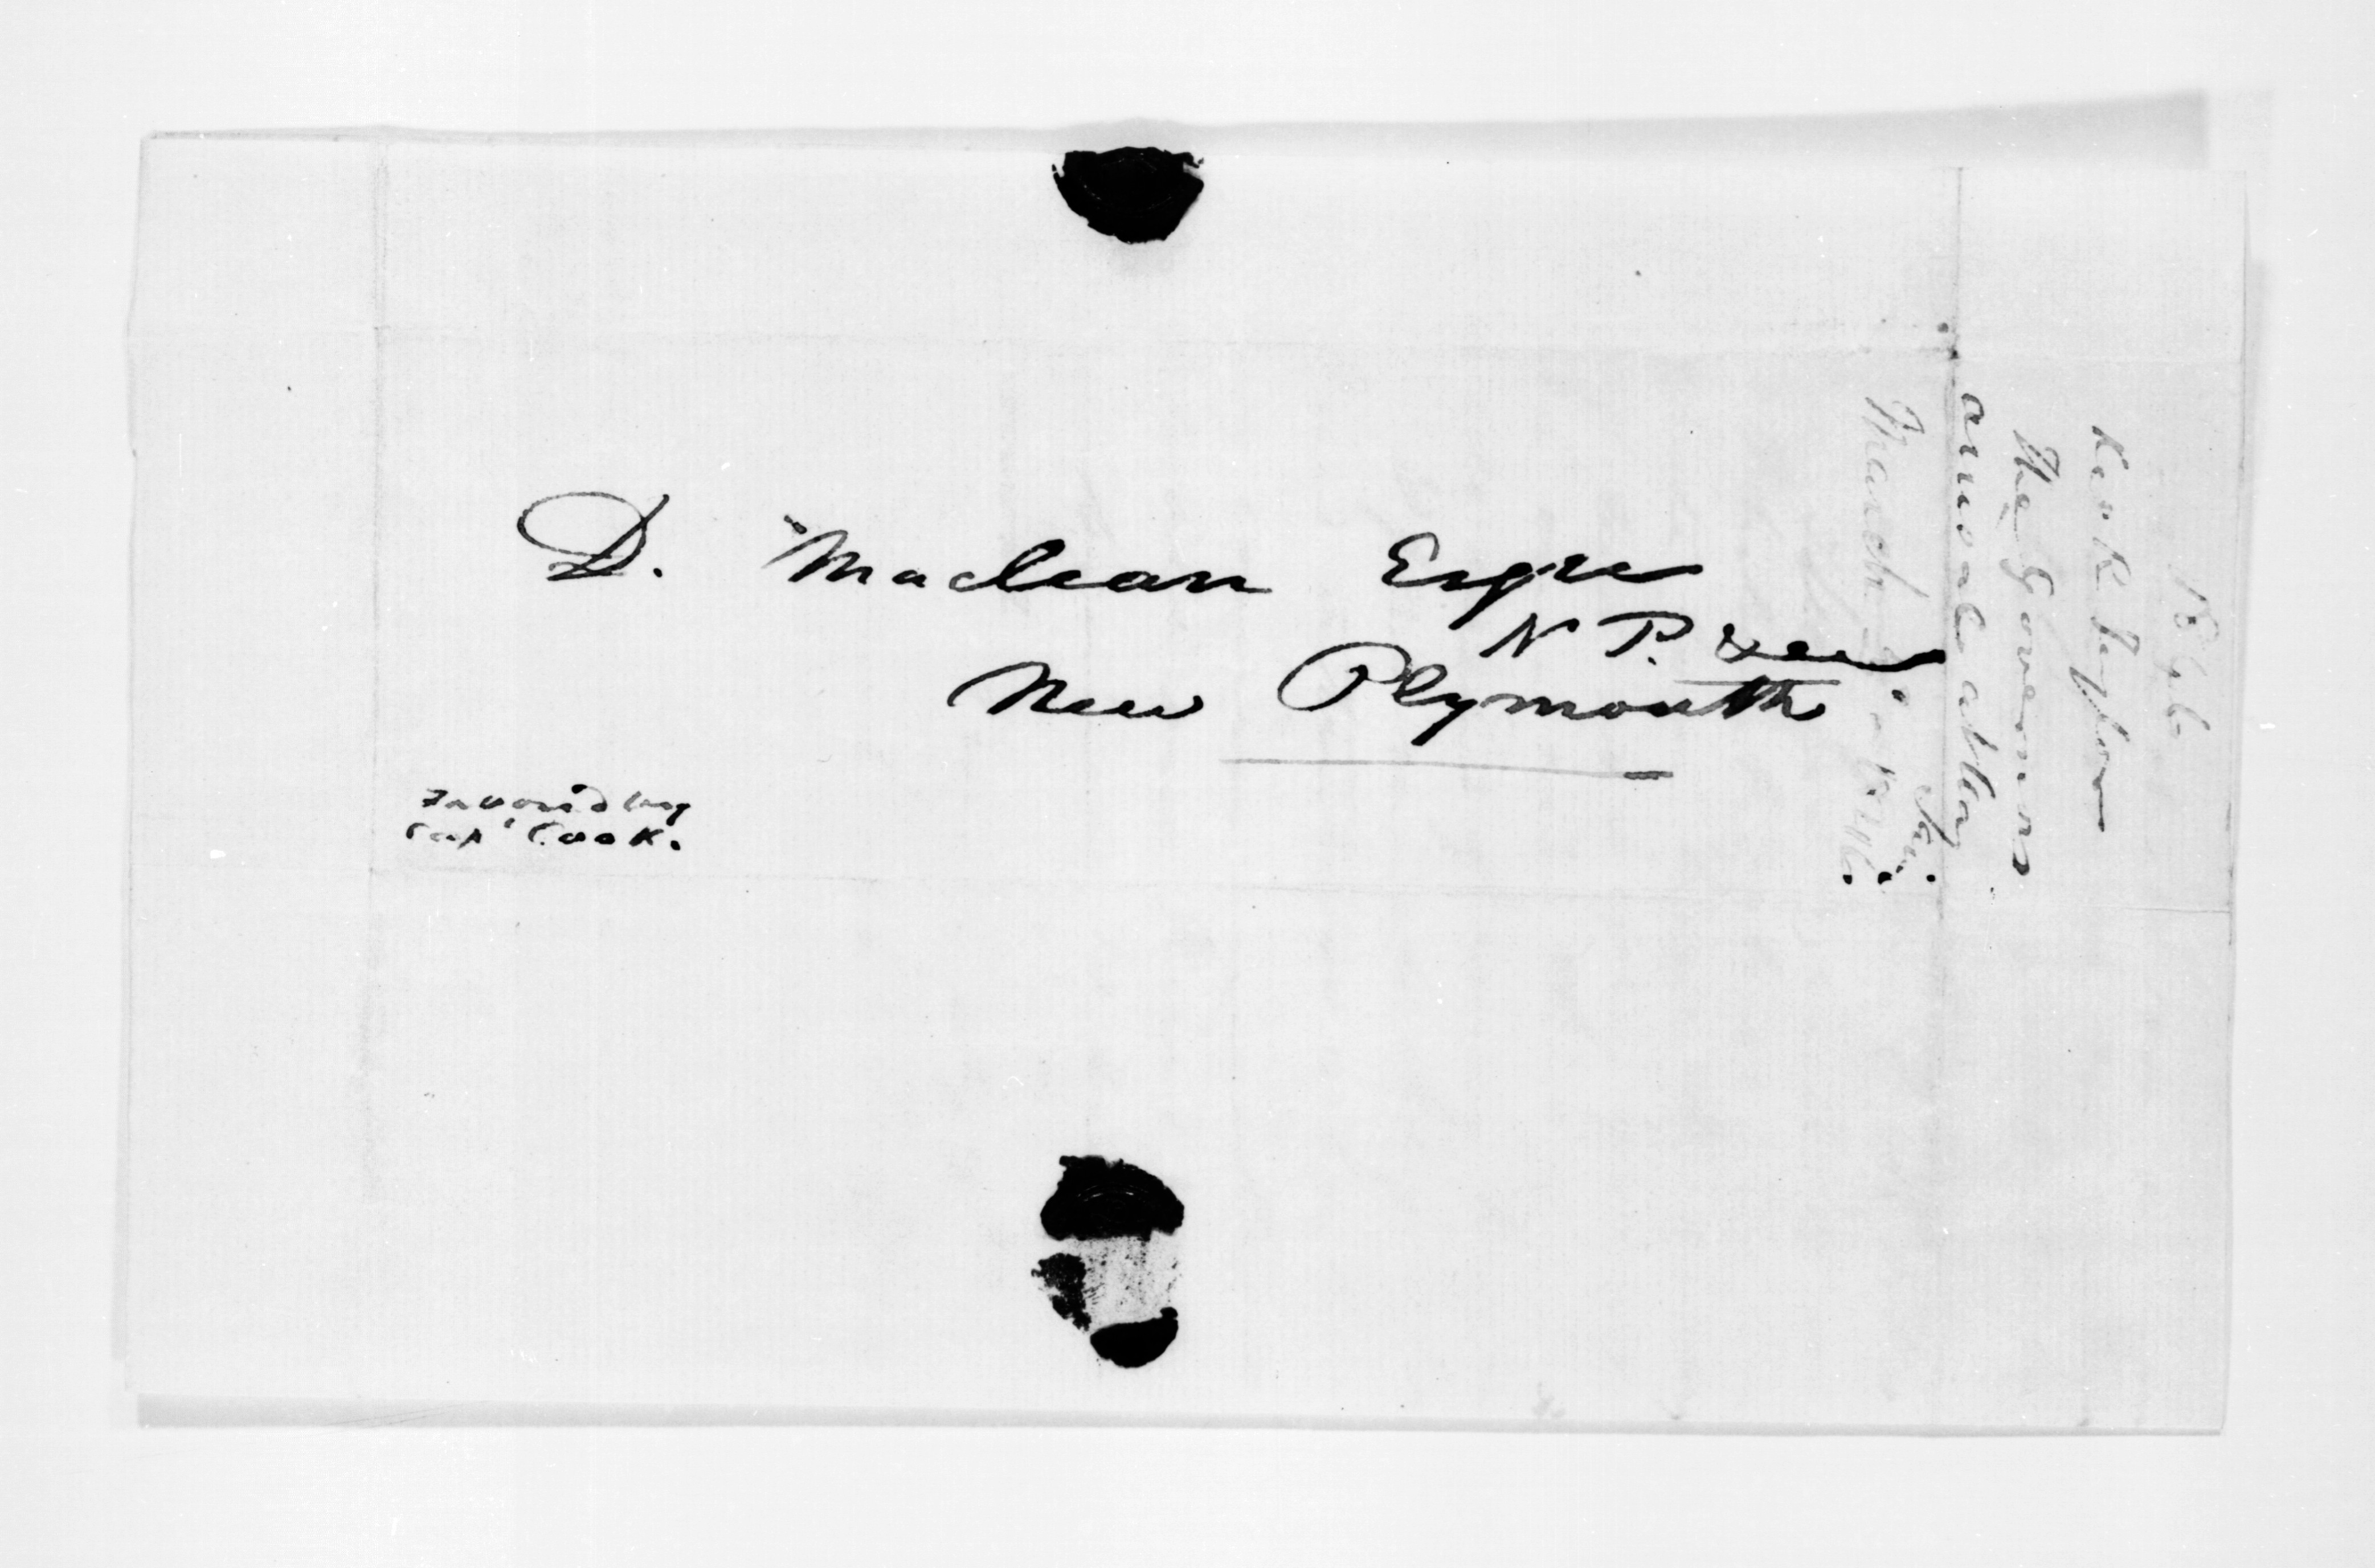 D. Maclean Esqre
N P. &c
New Plymouth
Favourd by
Capt Cook.
1846
Revd R Taylor
The Governors
arrival at
March 1846